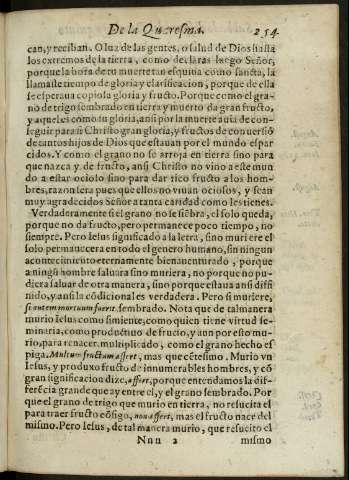 De la Quaresma. 254
can, y reciban. O luz de las gentes, o salud de Dios hasta
los extremos de la tierra, como declaras luego Señor,
porque la hora de tu muerte tan esquiua como sancta, la
llamaste tiempo de gloria y clarificacion, porque de ella
se esperaua copiosa gloria y fructo. Porque como el gra-
no de trigo sembrado en tierra y muerto da gran fructo,
y aquel es como su gloria, ansi por la muerte auia de con-
seguir para si Christo gran gloria, y fructos de conuersiõ
de tantos hijos de Dios que estauan por el mundo espar
cidos. Y como el grano no se arroja en tierra sino para
que nazca y de fructo, ansi Christo no vino a este mun
do a estar ocioso sino para dar rico fructo a los hom-
bres, razon sera pues que ellos no viuan ociosos, y sean
muy agradecidos Señor a tanta caridad como les tienes.
Verdaderamente si el grano no se siẽbra, el solo queda,
porque no da fructo, pero permanece poco tiempo, no
siempre. Pero Iesus significado a la letra, sino muriere el
solo permaneciera en todo el genero humano, sin ningun
acontecimiento eternamente bienauenturado, porque
a ningũ hombre saluara sino muriera, no porque no pu-
diera saluar de otra manera, sino porque estaua ansi diffi
nido, y ansi la cõdicional es verdadera. Pero si muriere,
si autem mortuum fuerit, sembrado. Nota que de tal manera
murio Iesus como simiente, como quien tiene virtud se-
minaria, como productiuo de fructo, y aun por esso mu-
rio, para renacer multiplicado, como el grano hecho es
piga. Multum fructum affert, mas que cẽtesimo. Murio vn
Iesus, y produxo fructo de innumerables hombres, y cõ
gran significacion dize, affert, porque entendamos la dif-
ferẽcia grande que ay entre el, y el grano sembrado. Por
que el grano de trigo que murio en tierra, no resucita el
para traer fructo cõsigo, non affert, mas el fructo nace del
mismo. Pero Iesus, de tal manera murio, que resucito el
Nnn 2 mismo